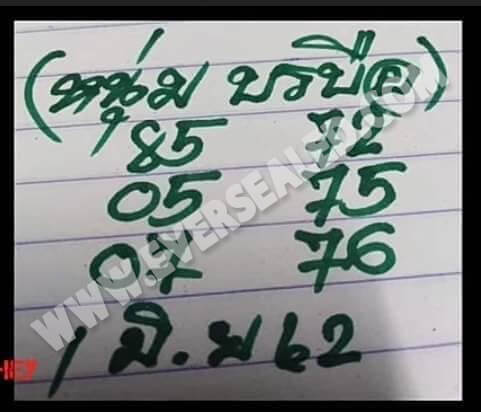 (หนุ่ม บรบือ)
85 72
05 75
07 76
1 มิ.ย 62
WWW.EVERSEALER.COM